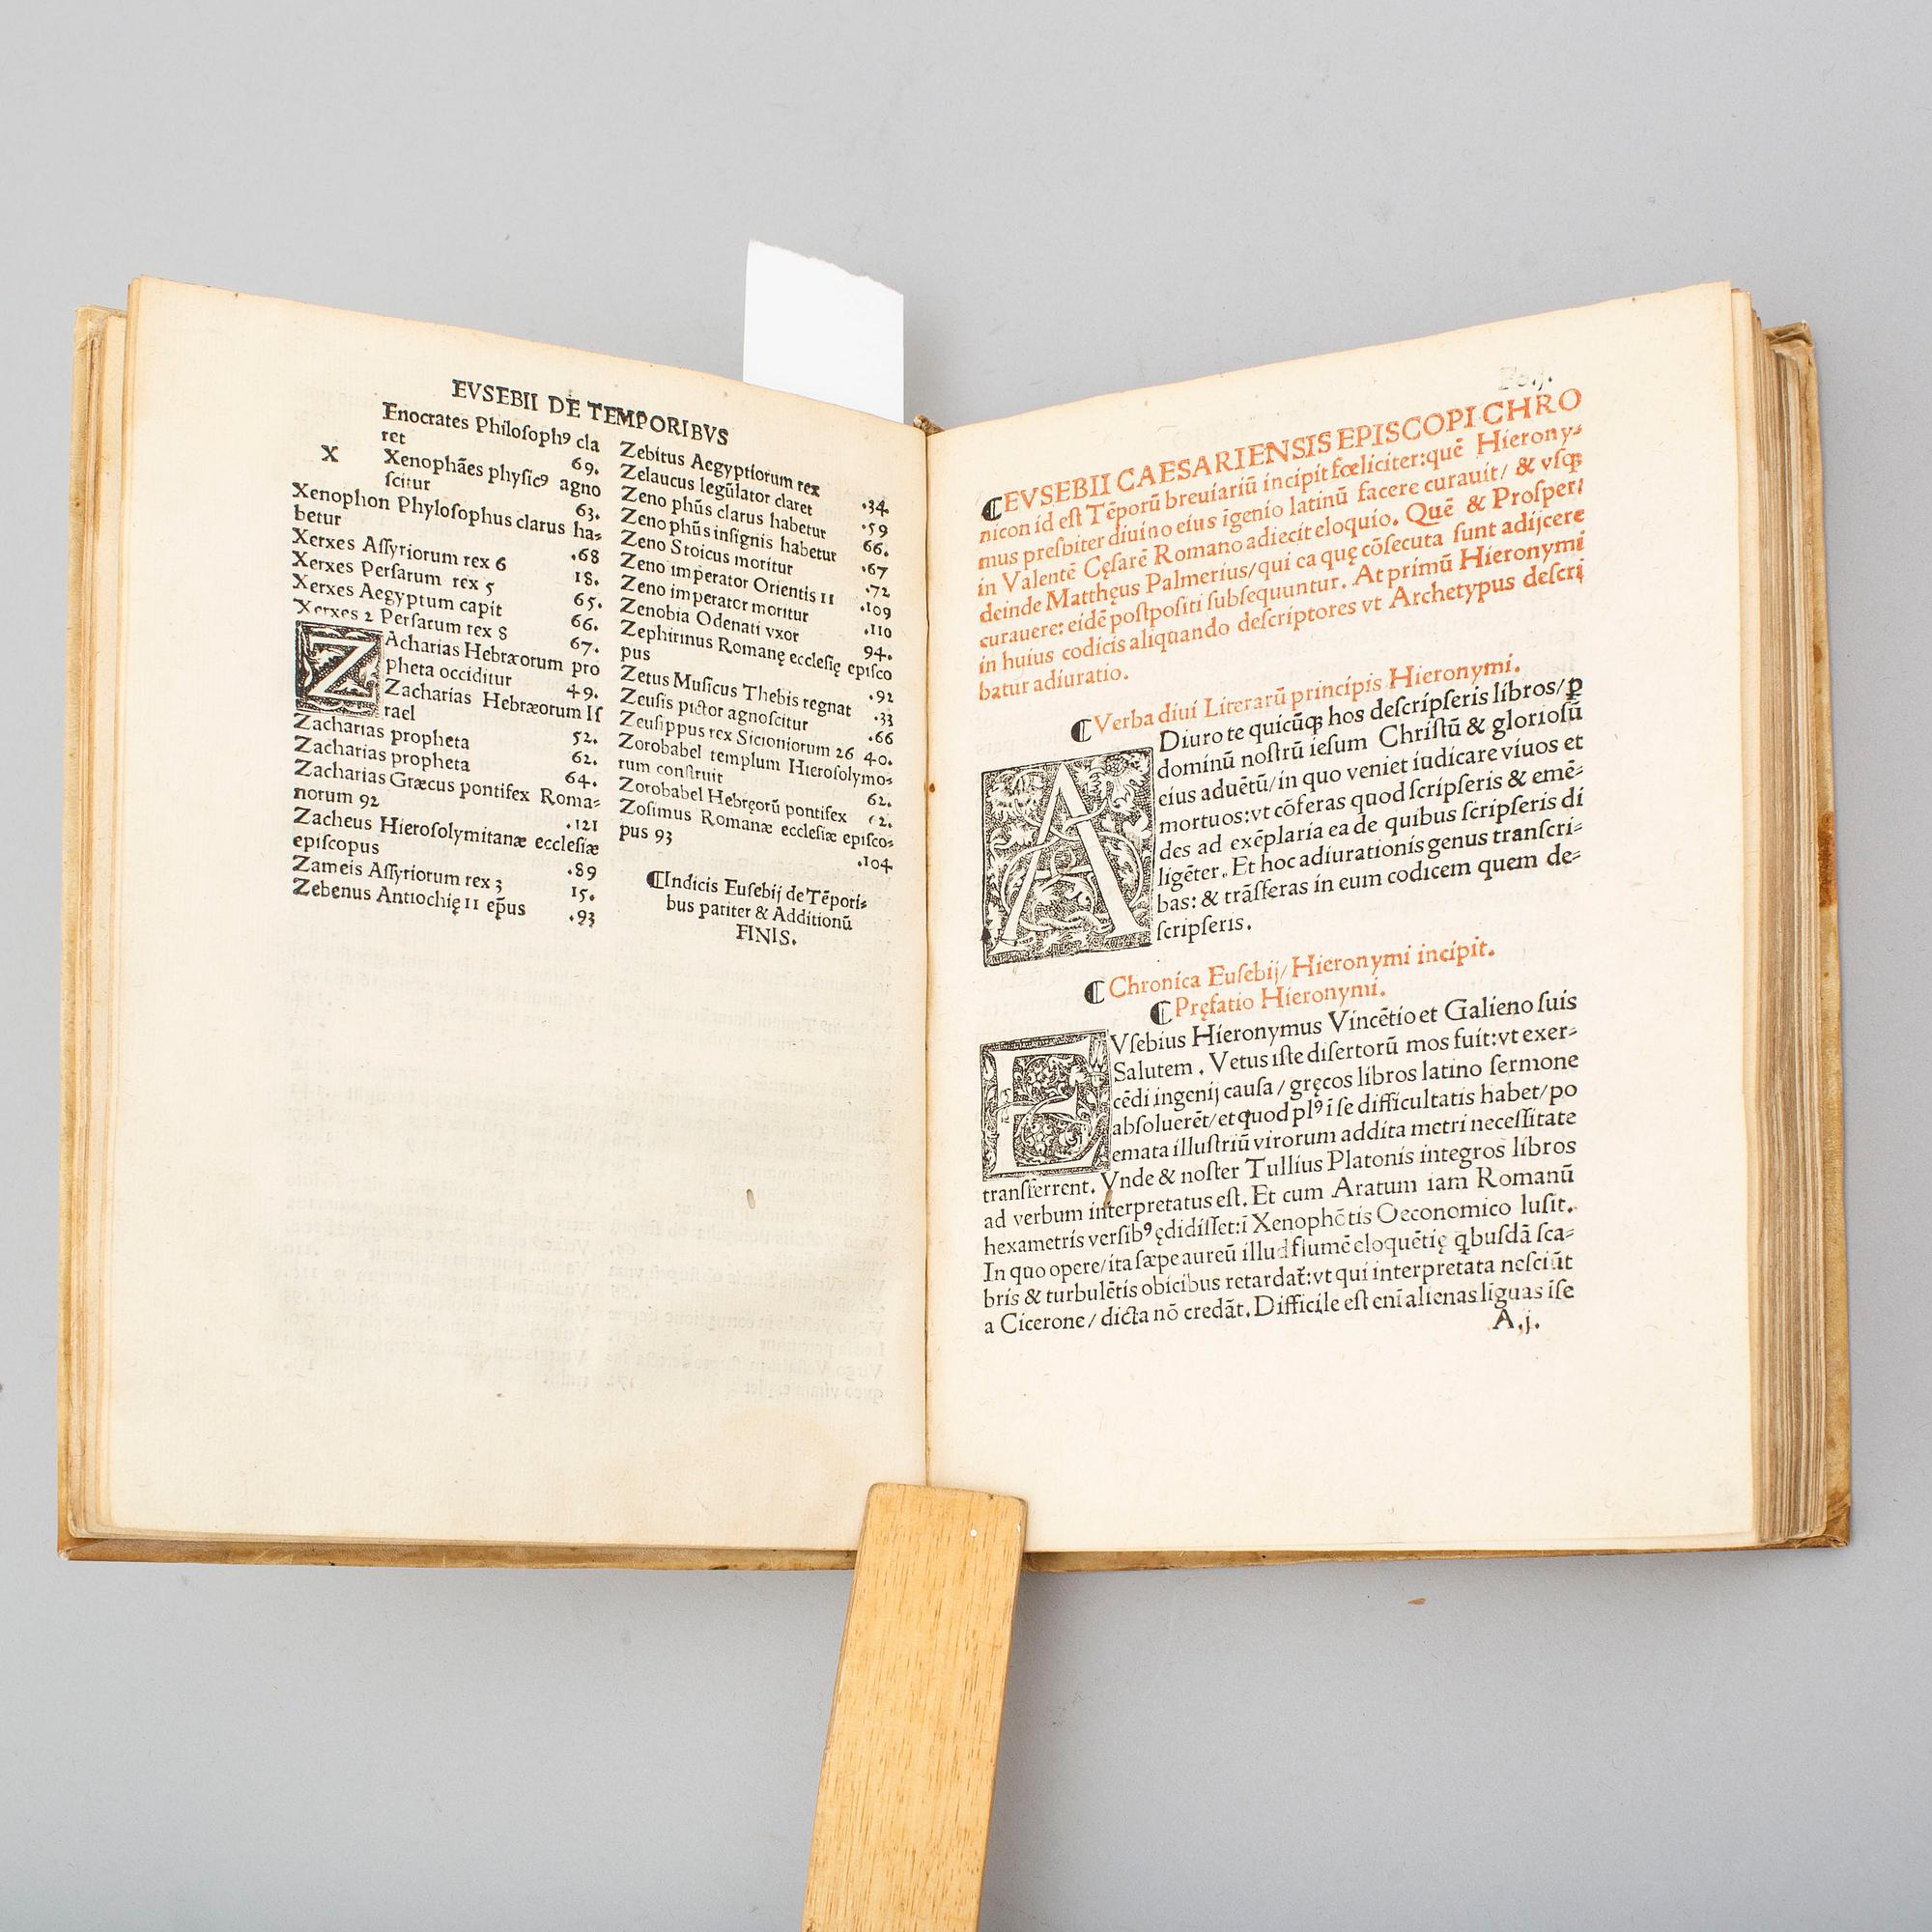 EVSEBII DE TEMPORIBVS
X
Enocrates Philoſophꝰ cla
ret 69.
Xenophães phyſicꝰ agno
ſcitur 63.
Xenophon Phyloſophus clarus ha⸗
betur .68
Xerxes Aſſyriorum rex 6 18.
Xerxes Perſarum rex 5 65.
Xerxes Aegyptum capit 66.
Xerxes 2 Perſarum rex 8 67.
ZAcharias Hebræorum pro
pheta occiditur 49.
Zacharias Hebræorum Iſ
rael 52.
Zacharias propheta 62.
Zacharias propheta 64.
Zacharias Græcus pontifex Roma⸗
norum 92 .121
Zacheus Hieroſolymitanæ eccleſiæ
epiſcopus .89
Zameis Aſſyriorum rex 3 15.
Zebenus Antiochię 11 ep̃us .93
Zebitus Aegyptiorum rex .34.
Zelaucus legũlator claret .59
Zeno phũs clarus habetur 66.
Zeno phũs inſignis habetur .67
Zeno Stoicus moritur .72
Zeno imperator Orientis 11 .109
Zeno imperator moritur .110
Zenobia Odenati vxor 94.
Zephirinus Romanę eccleſię epiſco
pus .92
Zetus Muſicus Thebis regnat .33
Zeuſis pictor agnoſcitur .66
Zeuſippus rex Sicioniorum 26 40.
Zorobabel templum Hieroſolymo⸗
rum conſtruit 62.
Zorobabel Hebręorũ pontifex 62.
Zoſimus Romanæ eccleſiæ epiſco⸗
pus 93 .104
⸿Indicis Euſebij de Tẽpori⸗
bus pariter & Additionũ
FINIS.
Fo.j.
⸿EVSEBII CAESARIENSIS EPISCOPI CHRO
nicon id eſt Tẽporũ breuiariũ incipit fœliciter:quẽ Hierony⸗
mus preſbiter diuino eius ĩgenio latinũ facere curauit/ & vſqꝫ
in Valentẽ Cęſarẽ Romano adiecit eloquio. Quẽ & Proſper:
deinde Matthęus Palmerius/qui ea quę cõſecuta ſunt adijcere
curauere: eidẽ poſtpoſiti ſubſequuntur. At primũ Hieronymi
in huius codicis aliquando deſcriptores vt Archetypus deſcri
batur adiuratio.
⸿Verba diui Literarũ principis Hieronymi.
ADiuro te quicũqꝫ hos deſcripſeris libros/ꝑ
dominũ noſtrũ ieſum Chriſtũ & glorioſũ
eius aduẽtũ/in quo veniet iudicare viuos et
mortuos:vt cõferas quod ſcripſeris & emẽ⸗
des ad exẽplaria ea de quibus ſcripſeris di
ligẽter. Et hoc adiurationis genus tranſcri⸗
bas: & trãſferas in eum codicem quem de⸗
ſcripſeris.
⸿Chronica Euſebij/Hieronymi incipit.
⸿Pręfatio Hieronymi.
EVſebius Hieronymus Vincẽtio et Galieno ſuis
Salutem . Vetus iſte diſertorũ mos fuit:vt exer⸗
cẽdi ingenij cauſa / gręcos libros latino ſermone
abſoluerẽt/et quod plꝰ ĩ ſe difficultatis habet/po
emata illuſtriũ virorum addita metri neceſſitate
tranſferrent. Vnde & noſter Tullius Platonis integros libros
ad verbum interpretatus eſt. Et cum Aratum iam Romanũ
hexametris verſibꝰ ędidiſſet:ĩ Xenophõtis Oeconomico luſit.
In quo opere/ita ſæpe aureũ illud flumẽ eloquẽtię qͥbuſdã ſca⸗
bris & turbulẽtis obicibus retardat̃:vt qui interpretata neſciũt
a Cicerone / dicta nõ credãt. Difficile eſt enĩ alienas liguas iſe
A.j.